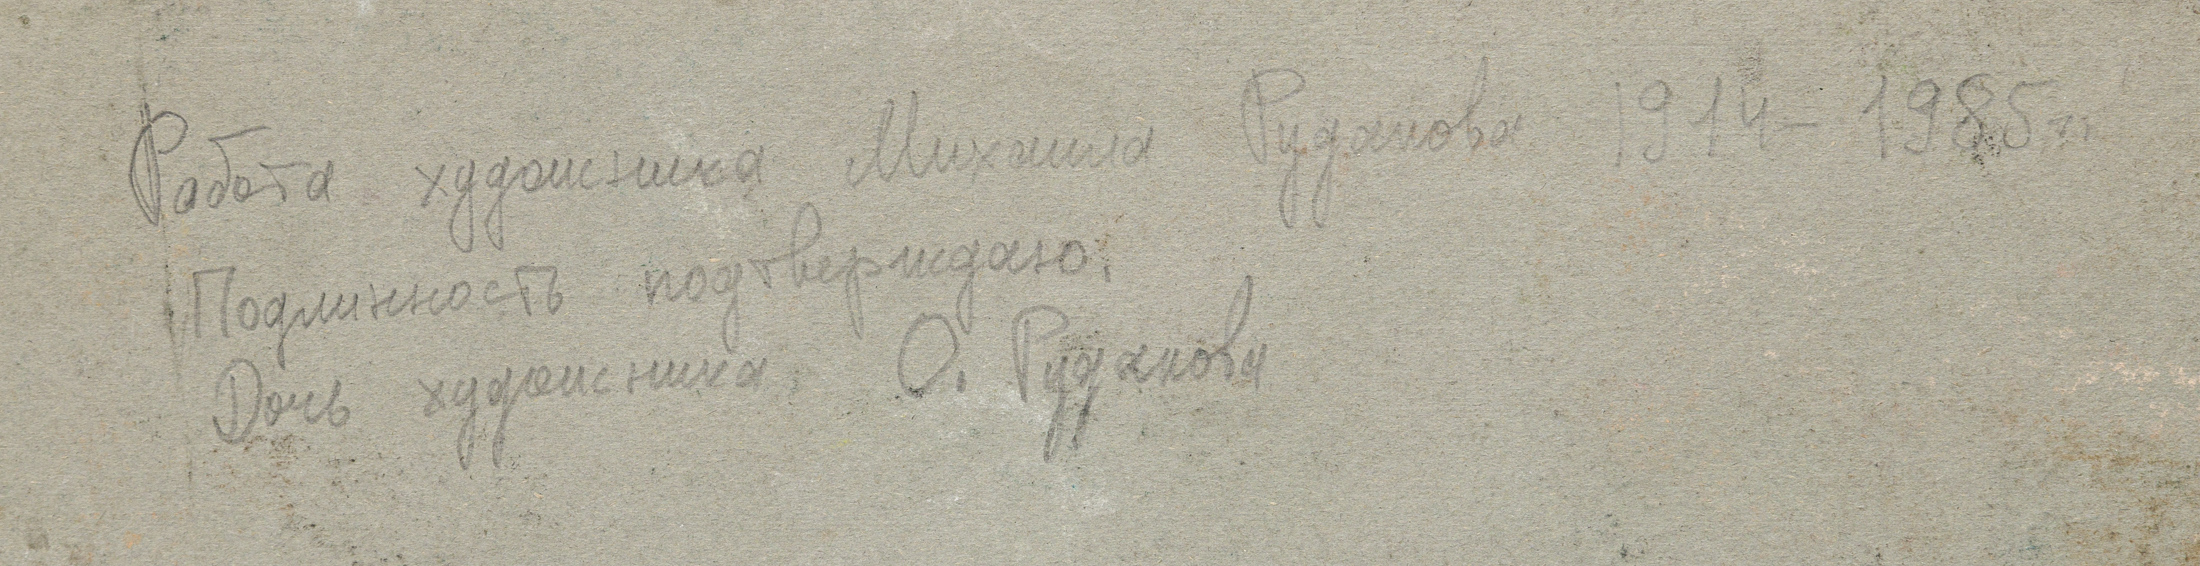 Работа художника Михаила Рудакова 1914-1985гг
Подлинность подтверждаю.
Дочь художника, О. Рудакова